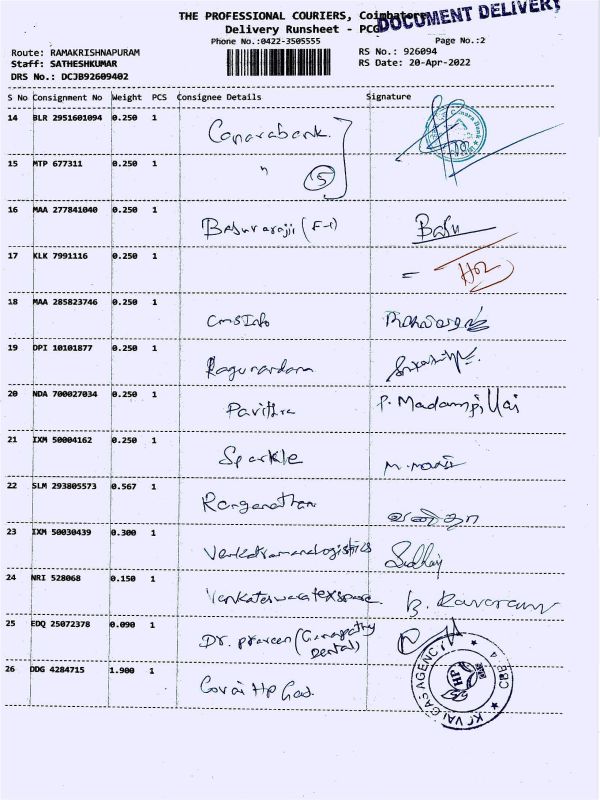 THE PROFESSIONAL COURIERS, Coimbatore
DOCUMENT DELIVERY
Delivery Runsheet - PCG
Phone No.:0422-3505555
Page No.:2
Route: RAMAKRISHNAPURAM
RS No.: 926094
Staff: SATHESHKUMAR
RS Date: 20-Apr-2022
DRS No.: DCJB92609402
S No Consignment No Weight PCS Consignee Details Signature
14 BLR 2951601094 0.250 1 Canarabank.
15 MTP 677311 0.250 1 " 15
16 MAA 277841040 0.250 1 Basuvaraji (F-1) Basu
17 KLK 7991116 0.250 1
18 MAA 285823746 0.250 1 CMSInfo
19 DPI 10101877 0.250 1
20 NDA 700027034 0.250 1 Pavithra P. Madampillai
21 IXM 50004162 0.250 1 Sparkle M. Mani
22 SLM 293805573 0.567 1 Ranganathan வனிதா
23 IXM 50030439 0.300 1 Venkatramanalogistics
24 NRI 528068 0.150 1
25 EDQ 25072378 0.090 1 Dr. Praveen (Ganapathy Dental)
26 DDG 4284715 1.900 1 Covai HP Gas.
KOVAI GAS AGENCY ★ CBE - 4 ★
HP GAS